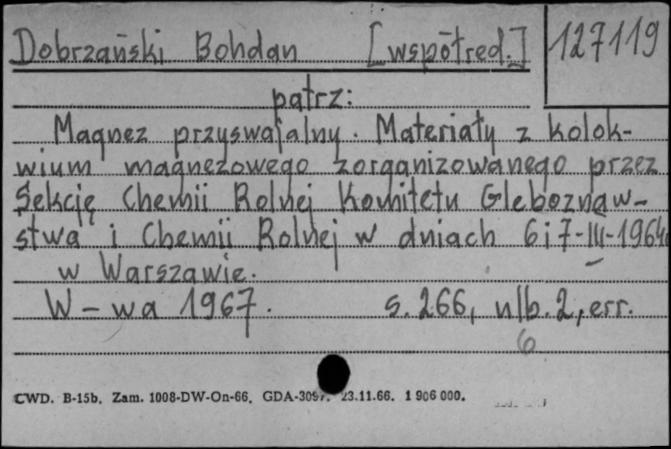 Dobrzański Bohdan [współred.] 127119
patrz:
Magnez przyswajalny. Materiały z kolok-
wium magnezowego zorganizowanego przez
Sekcję Chemii Rolnej Komitetu Gleboznaw-
stwa i Chemii Rolnej w dniach 6 i 7-III-1964
w Warszawie.
W-wa 1967. s. 266, nlb. 2, err.
6
CWD. B-15b. Zam. 1008-DW-On-66. GDA-3097. 23.11.66. 1 906 000.